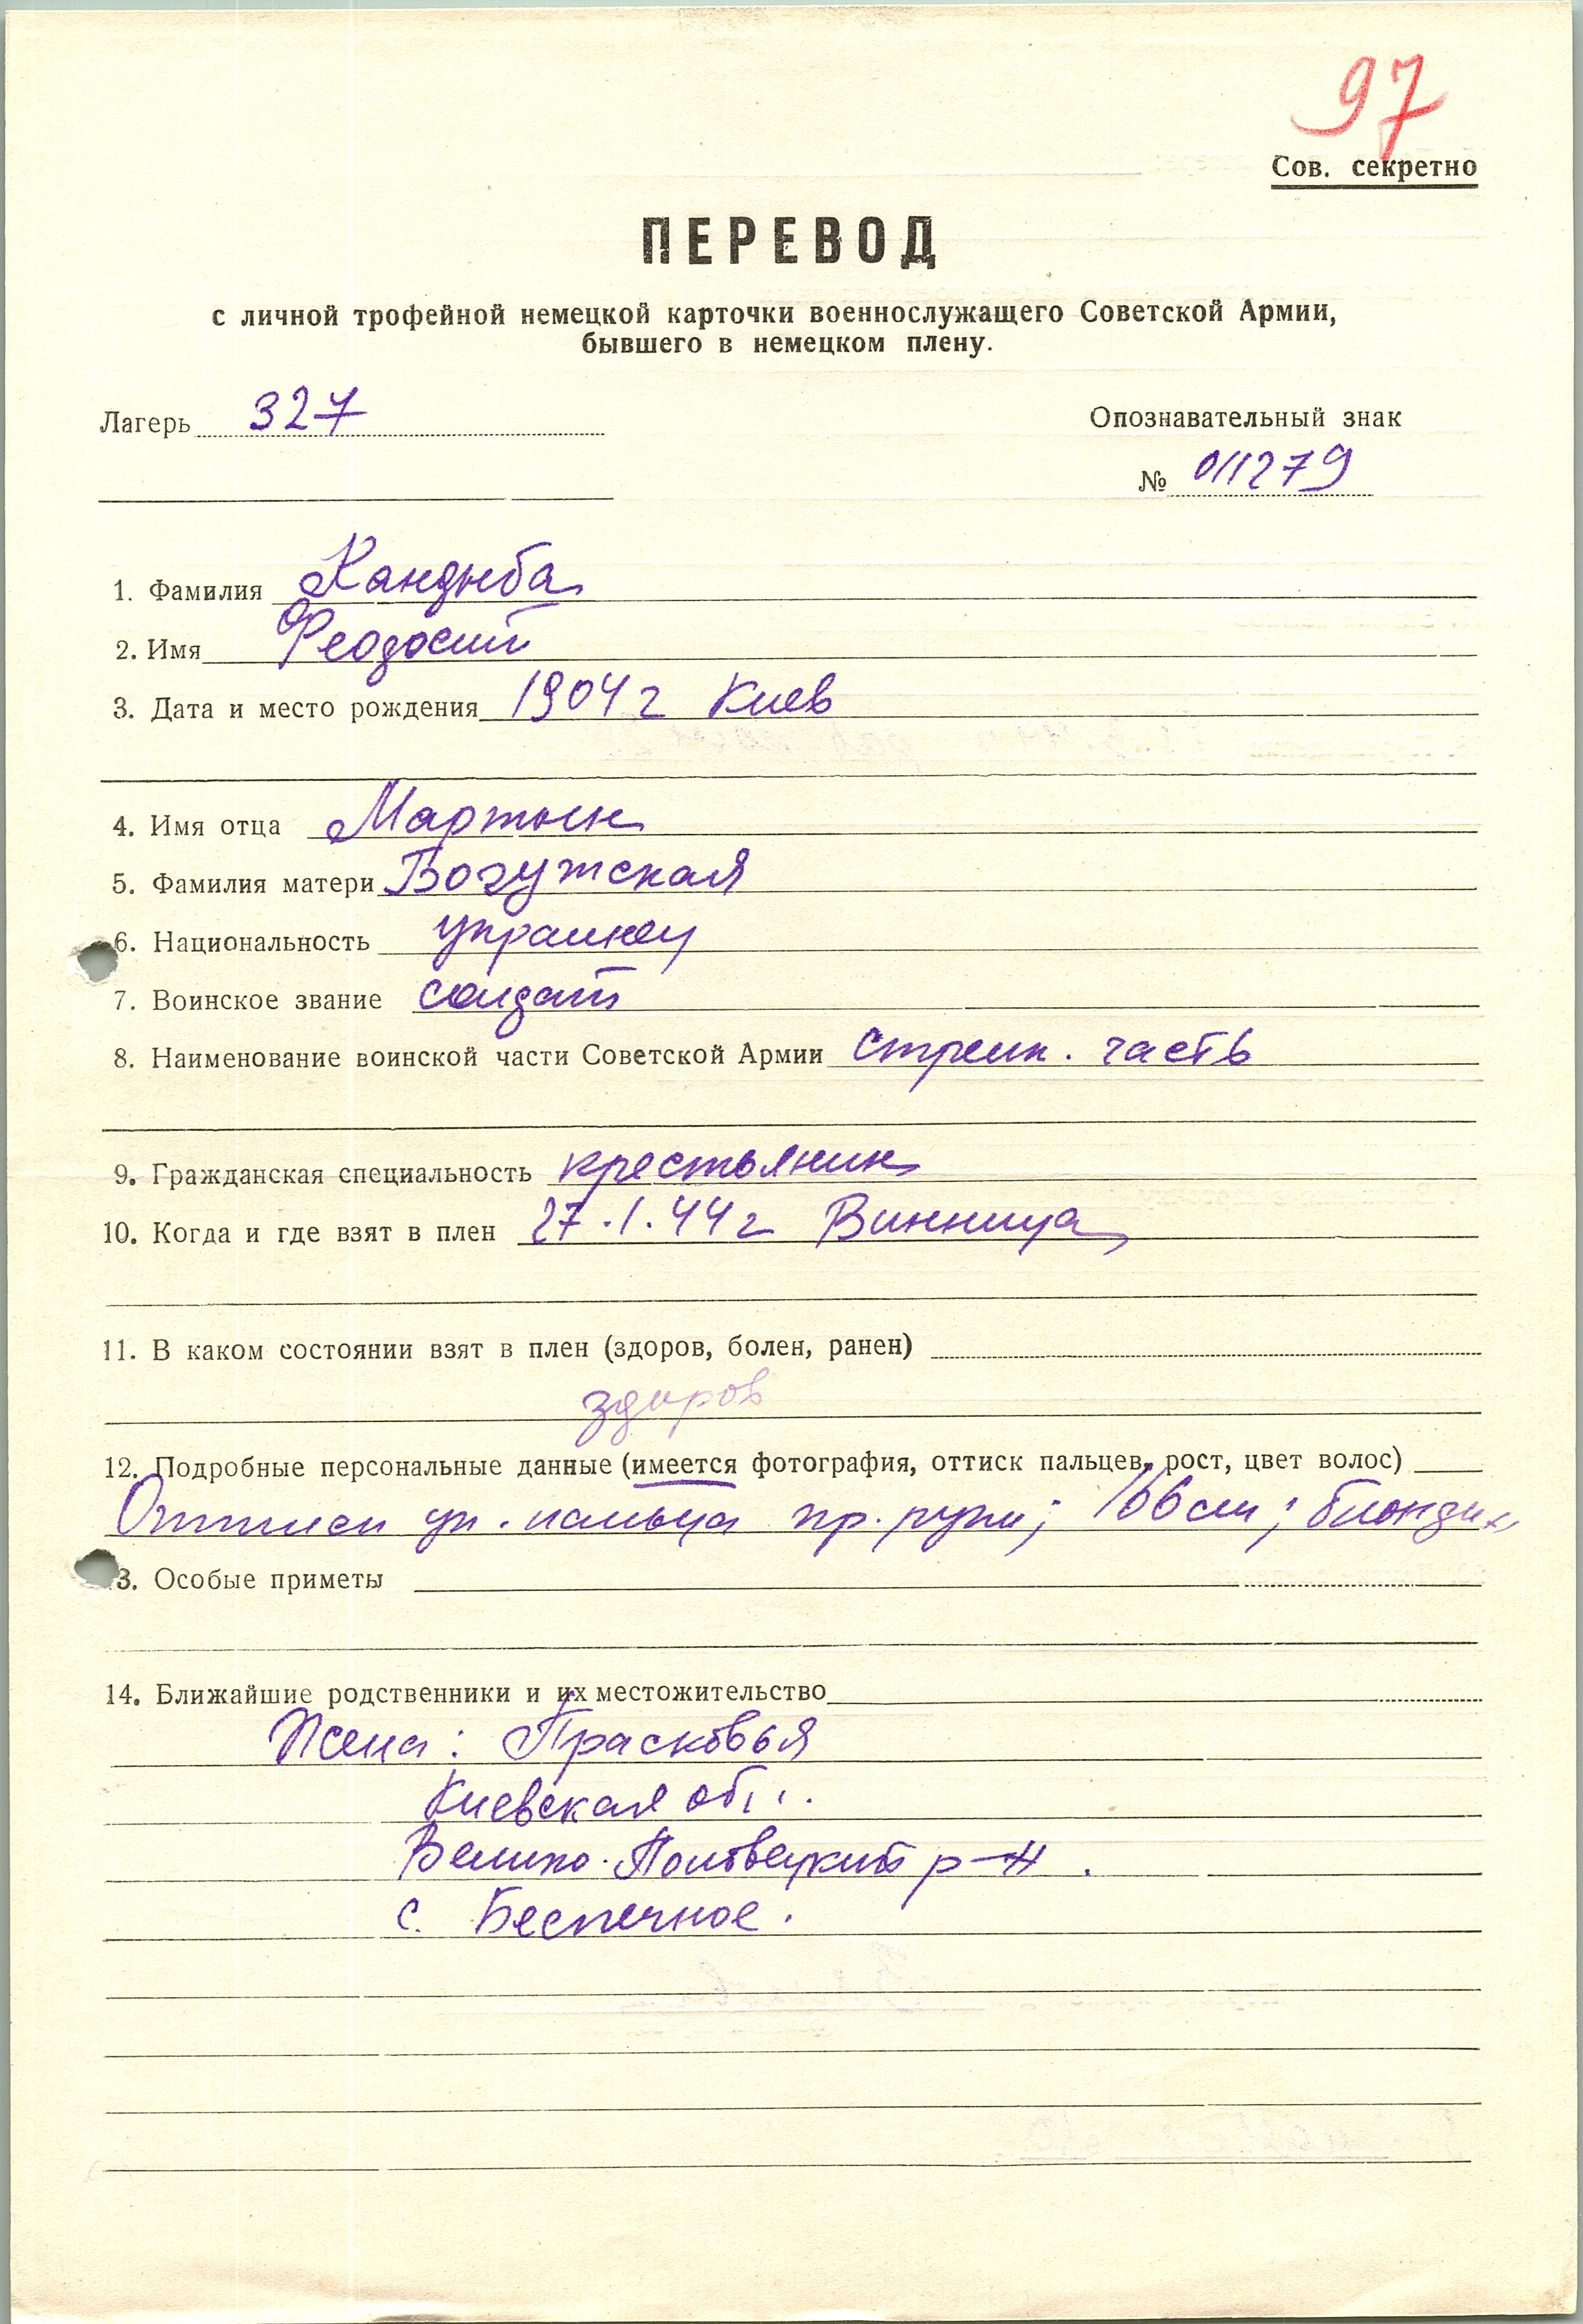 97
Сов. секретно
ПЕРЕВОД
с личной трофейной немецкой карточки военнослужащего Советской Армии,
бывшего в немецком плену.
Лагерь 327
Опознавательный знак
№ 011279
1. Фамилия Кандыба
2. Имя Феодосий
3. Дата и место рождения 1904 г Киев
4. Имя отца Мартын
5. Фамилия матери Богужская
6. Национальность украинец
7. Воинское звание солдат
8. Наименование воинской части Советской Армии стрелк. часть
9. Гражданская специальность крестьянин
10. Когда и где взят в плен 27.1.44 г Винница
11. В каком состоянии взят в плен (здоров, болен, ранен)
здоров
12. Подробные персональные данные (имеется фотография, оттиск пальцев, рост, цвет волос)
Оттиск ук. пальца пр. руки; 166 см; блондин
13. Особые приметы
14. Ближайшие родственники и их местожительство
Жена: Прасковья
Киевская обл.
Велико-Половецкий р-н.
с. Беспечное.